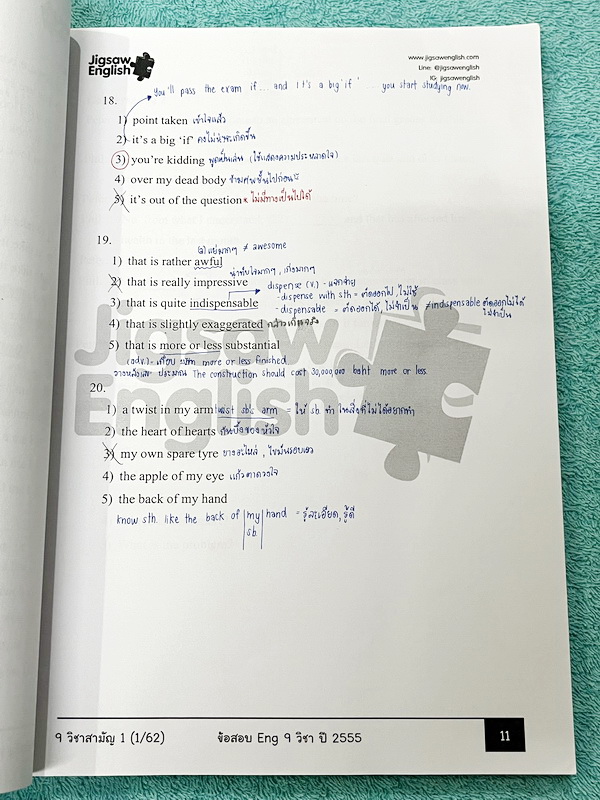 Jigsaw
English
www.jigsawenglish.com
Line: @jigsawenglish
IG: jigsawenglish
You'll pass the exam if ... and it's a big 'if' ... you start studying now.
18.
1) point taken เข้าใจแล้ว
2) it's a big 'if' คงไม่น่าจะเกิดขึ้น
3) you're kidding พูดเป็นเล่น (ใช้แสดงความประหลาดใจ)
4) over my dead body ข้ามศพฉันไปก่อน
5) it's out of the question ไม่มีทางเป็นไปได้
19.
แย่มากๆ ≠ awesome
1) that is rather awful
น่าทึ่งมากๆ, เก่งมากๆ
2) that is really impressive
dispense (v.) - แจกจ่าย
- dispense with sth = ตัดออกไป, ไม่ใช้
3) that is quite indispensable
- dispensable = ตัดออกได้, ไม่จำเป็น ≠ indispensable ตัดออกไม่ได้
4) that is slightly exaggerated กล่าวเกินจริง
5) that is more or less substantial
(adv.) = เกือบ more or less finished
ประมาณ The construction should cost 30,000,000 baht more or less
20.
1) a twist in my arm twist sb's arm = ให้ sb. ทำในสิ่งที่ไม่ได้อยากทำ
2) the heart of hearts ก้นบึ้งของหัวใจ
3) my own spare tyre ยางอะไหล่, ไขมันรอบเอว
4) the apple of my eye แก้วตาดวงใจ
5) the back of my hand
know sth. like the back of my hand = รู้ละเอียด, รู้ดี
sb.
Jigsaw
English
9 วิชาสามัญ 1 (1/62)
ข้อสอบ Eng 9 วิชา ปี 2555
11